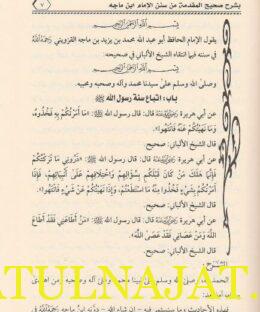 بشرح صحيح المقدمة من سنن الإمام ابن ماجه
٧
بسم الله الرحمن الرحيم
يقول الإمام الحافظ أبو عبد الله محمد بن يزيد بن ماجه القزويني رحمه الله
في سننه فيما انتقاه الشيخ الألباني في صحيحه:
بسم الله الرحمن الرحيم
وصلى الله وسلم على سيدنا محمد وآله وصحبه ومحبيه
باب: اتباع سنة رسول الله ﷺ
عن أبي هريرة قال: قال رسول الله ﷺ: «مَا أَمَرْتُكُمْ بِهِ فَخُذُوهُ،
وَمَا نَهَيْتُكُمْ عَنْهُ فَانْتَهُوا».
قال الشيخ الألباني: صحيح.
عن أبي هريرة قال: قال رسول الله ﷺ: «ذَرُونِي مَا تَرَكْتُكُمْ
فَإِنَّمَا هَلَكَ مَنْ كَانَ قَبْلَكُمْ بِسُؤَالِهِمْ وَاخْتِلَافِهِمْ عَلَى أَنْبِيَائِهِمْ، فَإِذَا
أَمَرْتُكُمْ بِشَيْءٍ فَخُذُوا مِنْهُ مَا اسْتَطَعْتُمْ، وَإِذَا نَهَيْتُكُمْ عَنْ شَيْءٍ فَانْتَهُوا».
قال الشيخ الألباني: صحيح.
عن أبي هريرة قال: قال رسول الله ﷺ: «مَنْ أَطَاعَنِي فَقَدْ أَطَاعَ
اللَّهَ وَمَنْ عَصَانِي فَقَدْ عَصَى اللَّهَ».
قال الشيخ الألباني: صحيح.
الشرح
ATULNAJAT.